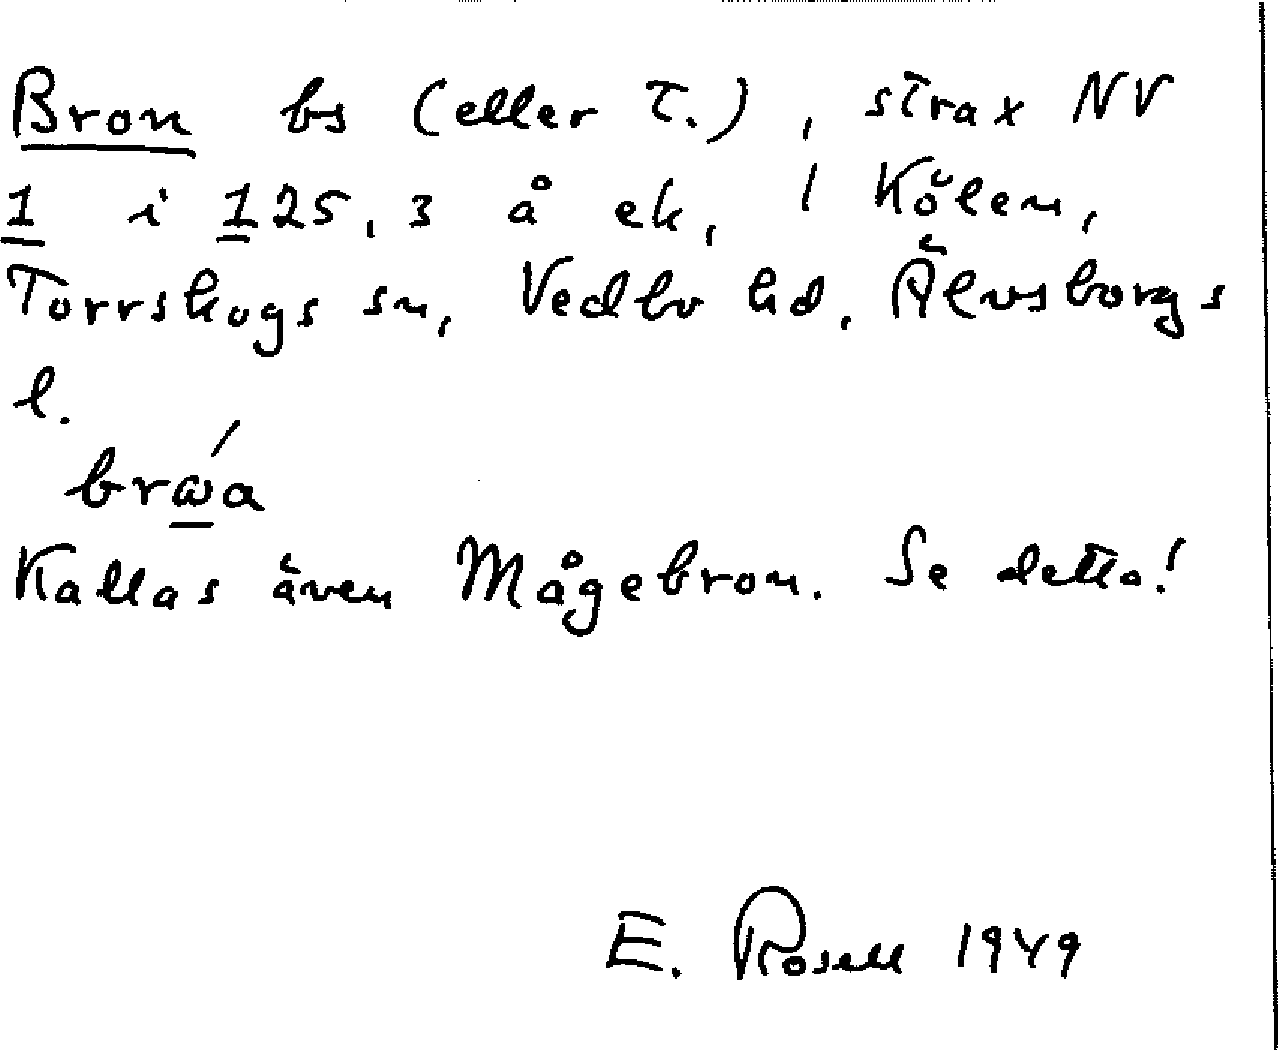 Bron bs (eller t.), strax NV
1 i 125, 3 å ek, / Kölen,
Torrskogs sn, Vedbo hd, Älvsborgs
l.
brωa
Kallas även Mågebron. Se detta!
E. Rosell 1949